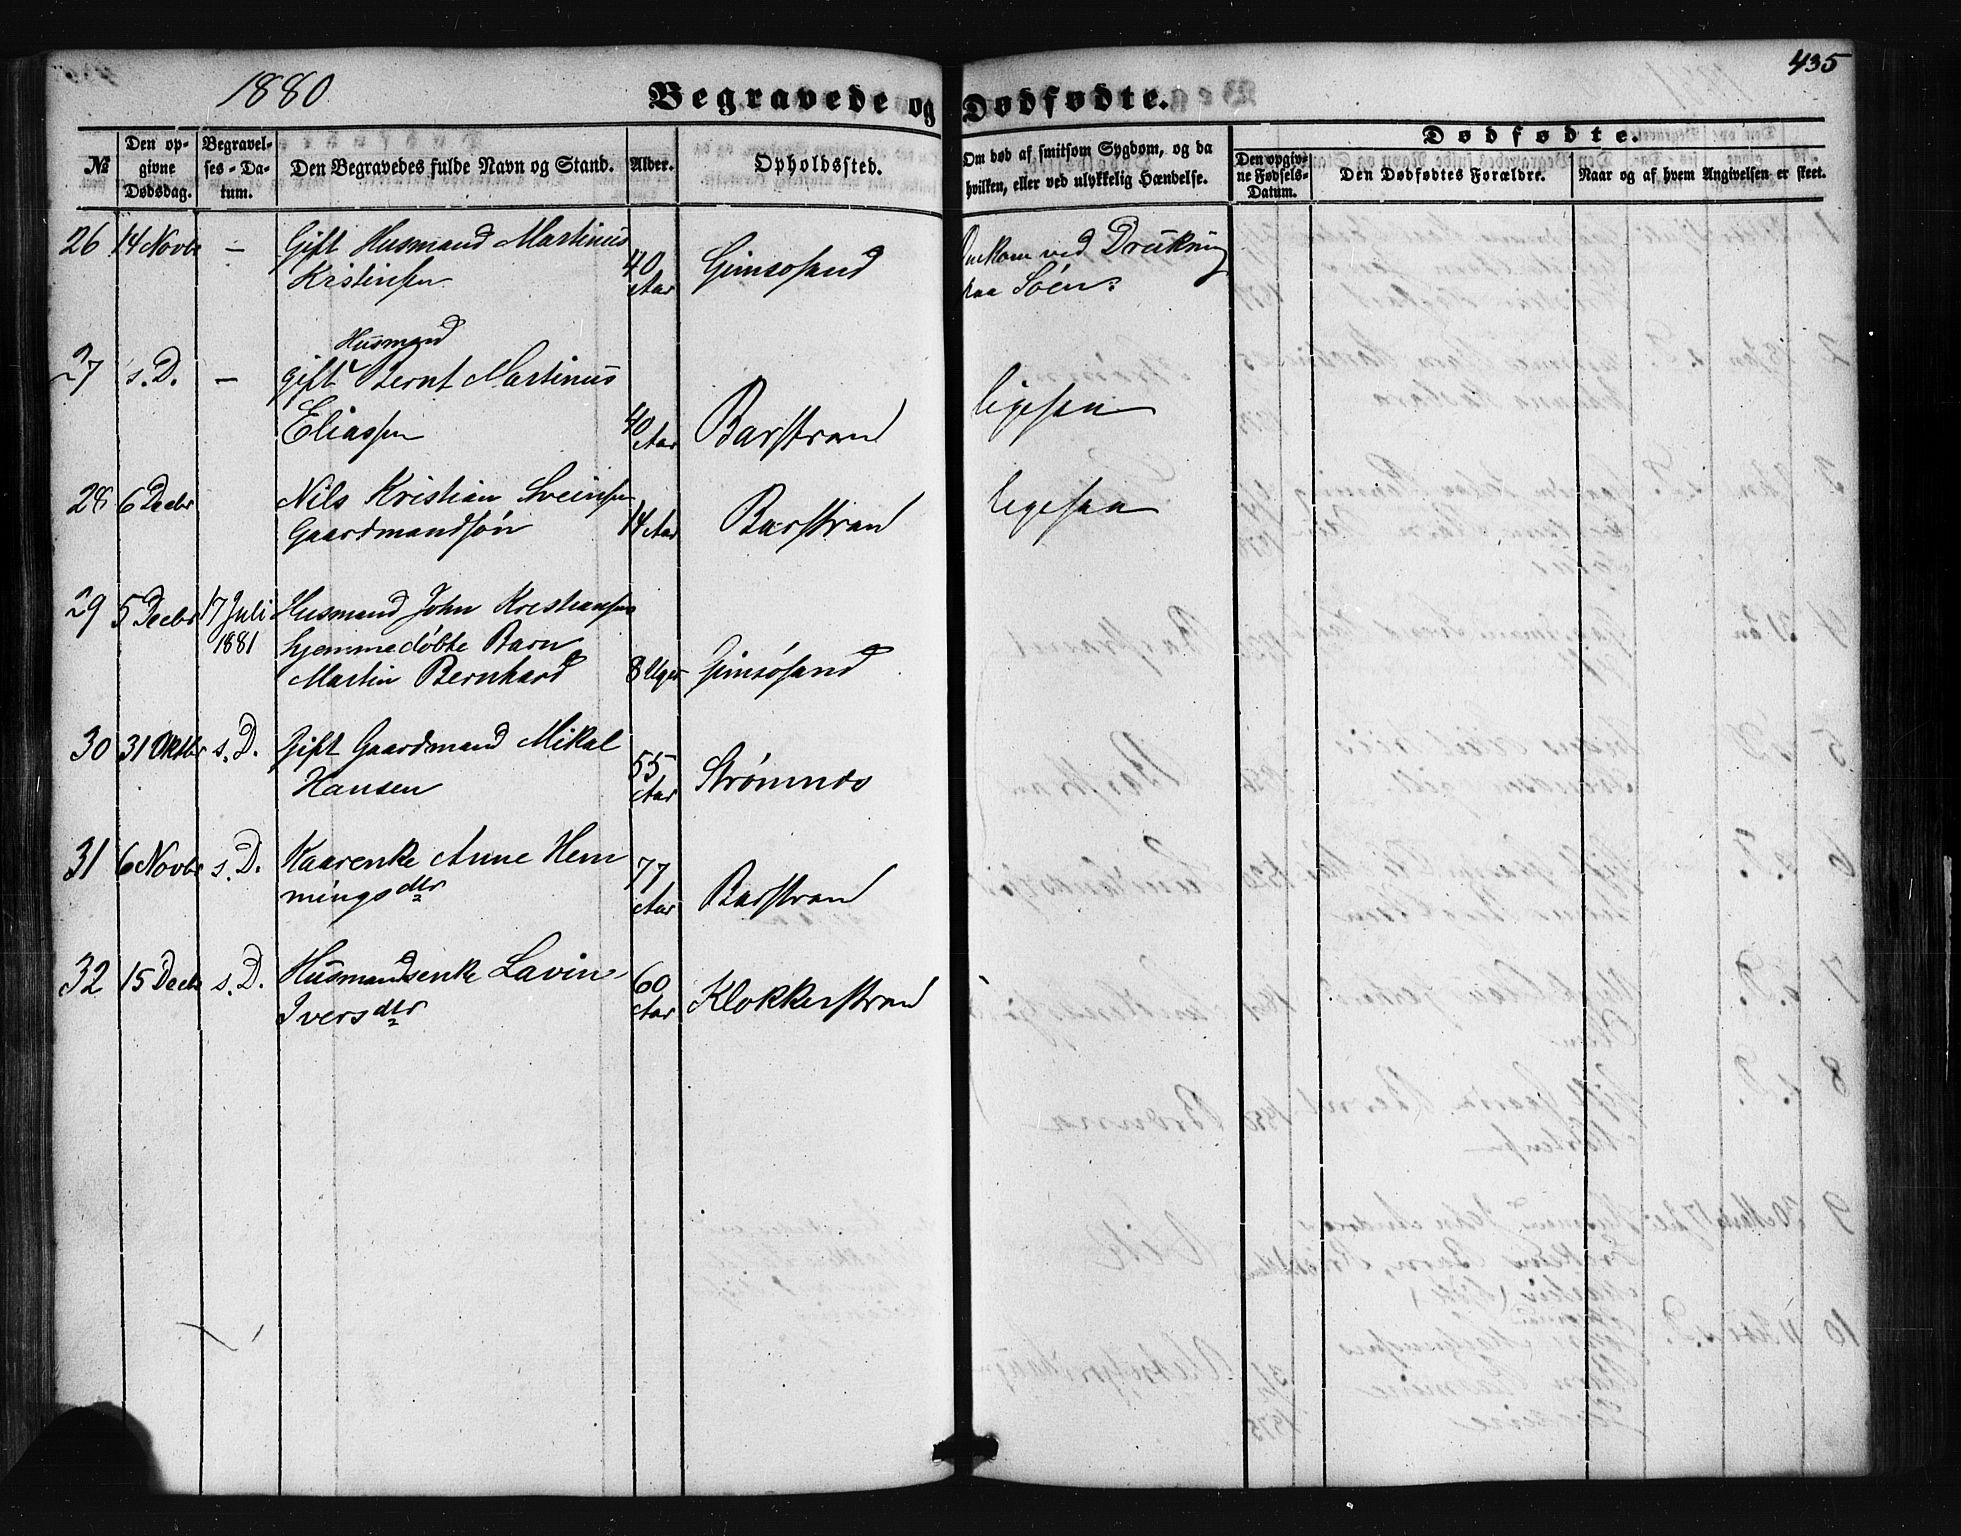 1880
435
Begravede og Dødfødte.
№
Den opgivne Dødsdag.
Begravelses-Datum.
Den Begravedes fulde Navn og Stand.
Alder.
Opholdssted.
Om død af smitsom Sygdom, og da hvilken, eller ved ulykkelig Hændelse.
Dødfødte.
Den opgivne Fødsels-Datum.
Den Dødfødtes Forældre.
Naar og af hvem Angivelsen er skeet.
26 14 Novbr – Gift Husmand Martinus 40 Gimsøsand Omkom ved Drukning
Kristinsen Aar paa Søen.
Husmand
27 s. D. – gift Bernt Martinus
Eliassen 40 Aar Barstrand ligesaa
28 6 Decbr Nils Kristian Sveinsen
Gaardmandsøn 14 Aar Barstrand ligesaa
29 5 Decbr 17 Juli Husmand John Kristiansens
1881 hjemmedøbte Barn
Martin Bernhard 8 Uger Gimsøsand
30 31 Oktbr s. D. Gift Gaardmand Mikal 55
Hansen Aar Strømnes
31 6 Novbr s. D. Kaarenke Anne Hem 77
mingsdtr Aar Barstrand
32 15 Decbr s. D. Husmandsenke Lavin 60
Iversdtr Aar Klokkerstrand